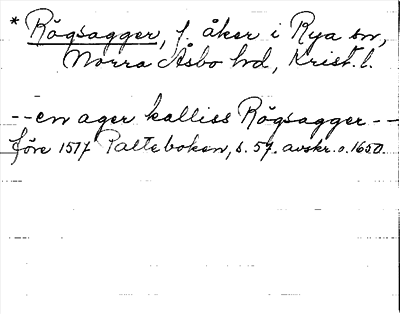 * Rögsagger, f. åker i Rya sn,
Norra Åsbo hd, Krist. l.
-- en ager kalliss Rögsagger --
före 1517 Palteboken, s. 57. avskr. o. 1650.